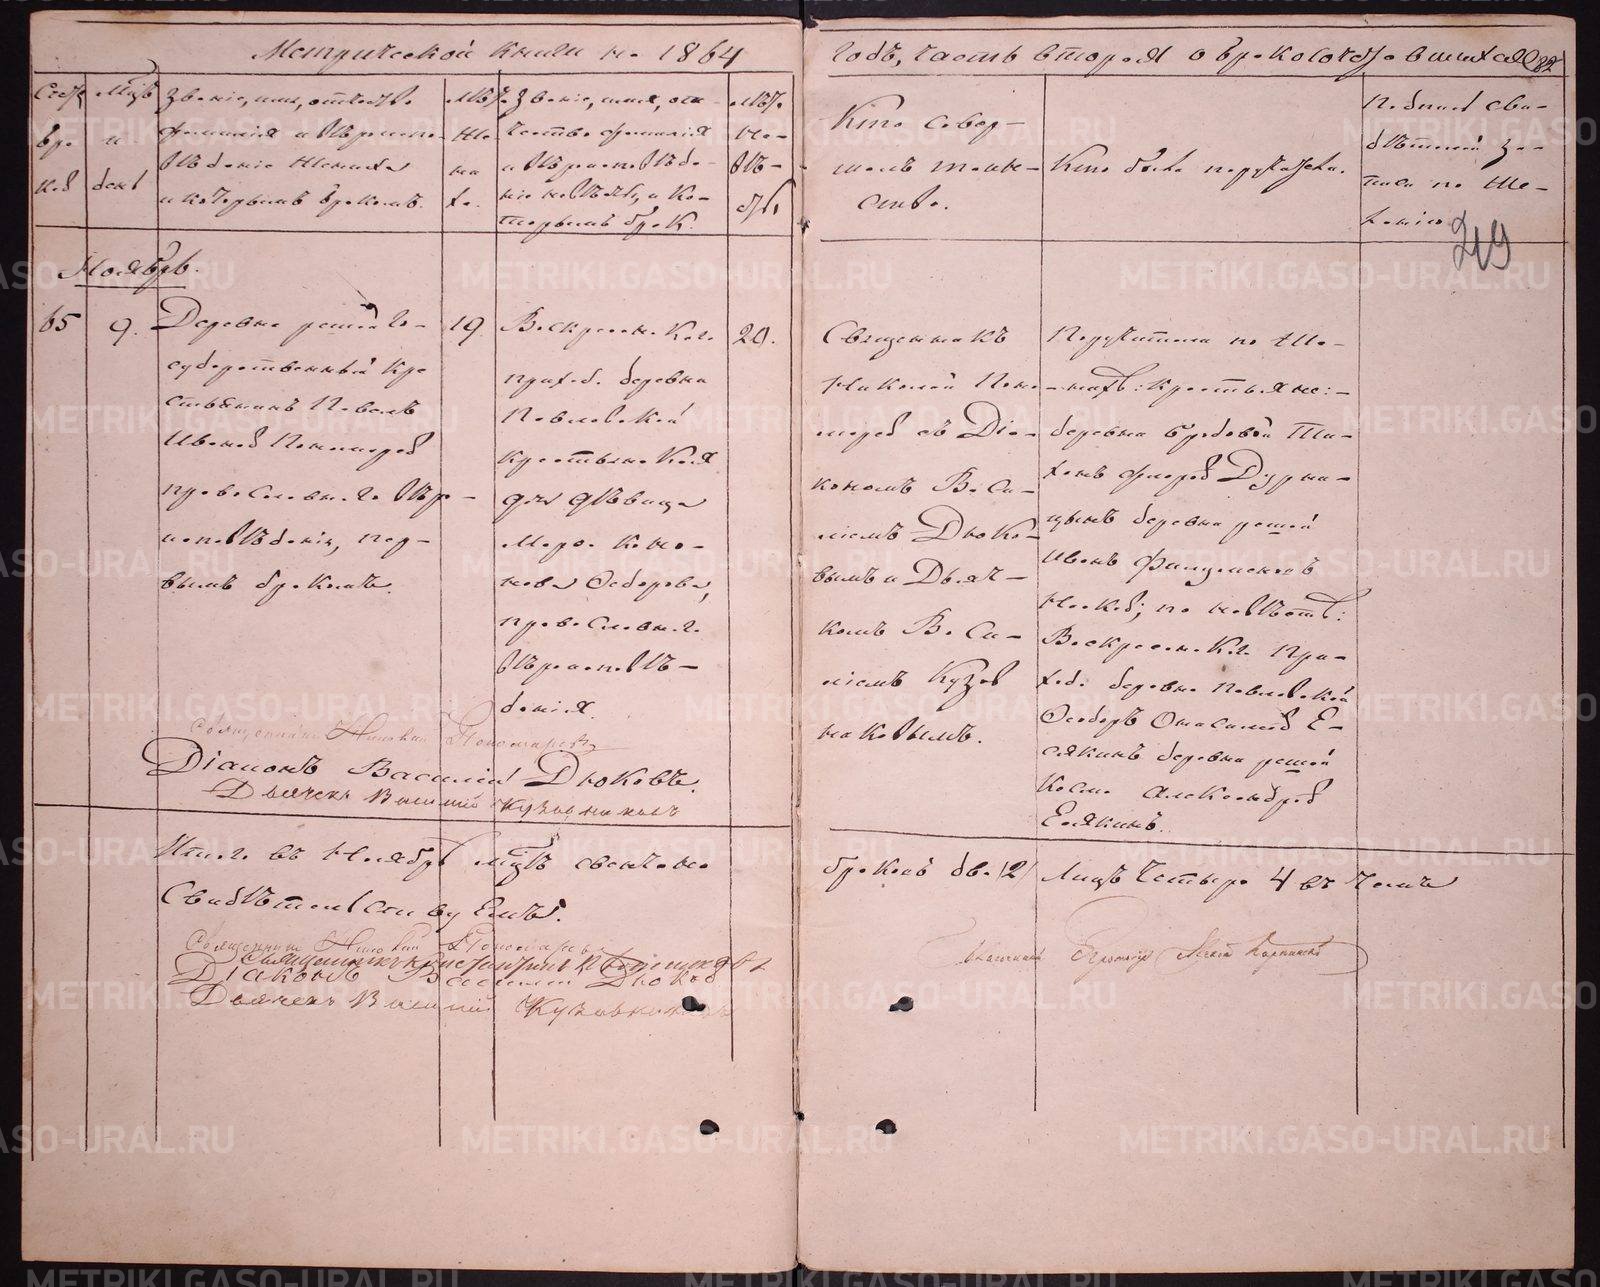 Метрической книги на 1864
годъ, часть вторая о бракосочетавшихся
82
Мѣсяцъ и день
Званіе, имя, отчество
фамилія и вѣроиспо-
вѣданіе жениха
и которымъ бракомъ.
Лѣта жениха.
Званіе, имя, от-
чество фамилія
и вѣроисповѣда-
ніе невѣсты, и ко-
торымъ брак.
Лѣта невѣсты
Кто совер-
шалъ таин-
ство.
Кто были поручители.
Подписъ сви-
дѣтелей за-
писи по же-
ланію
219
Ноябрь.
65
9.
Деревни решей го-
сударственный кре
стьянинъ Павелъ
Ивановъ Пономаревъ
православнаго вѣро-
исповѣданія, пер-
вымъ бракомъ.
19.
Воскресенскаго
прихода деревни
Павловской
крестьянская
дочь дѣвица
Ѳедорова,
православнаго
вѣроисповѣ-
данія.
20.
Священникъ
Николай Поно-
маревъ съ Діа-
кономъ Васи-
ліемъ Дюко-
вымъ и Дьяч-
комъ Васи-
ліемъ Кузов
никовымъ.
Поручители по же-
нихѣ: крестьяне:
деревни Бродовой Ти-
хонъ Флоровъ Дурни-
цынъ деревни решей
Иванъ Филимоновъ
Носковъ; по невѣстѣ:
Воскресенскаго При-
хода деревни Павловской
Ѳедоръ Е-
лякинъ деревни решей
Косма Александровъ
Елякинъ.
Священникъ Николай Пономаревъ
Діаконъ Василій Дюковъ.
Дьячекъ Василій Кузовниковъ
Итого въ Ноябрѣ мѣсяцѣ свенчано
браковъ два /2/ Лицъ Четыре 4 въ чемъ
Свидѣтельствуемъ.
Священникъ Николай Пономаревъ
Діаконъ Василій Дюковъ
Дьячекъ Василій Кузовниковъ
METRIKI.GASO-URAL.RU